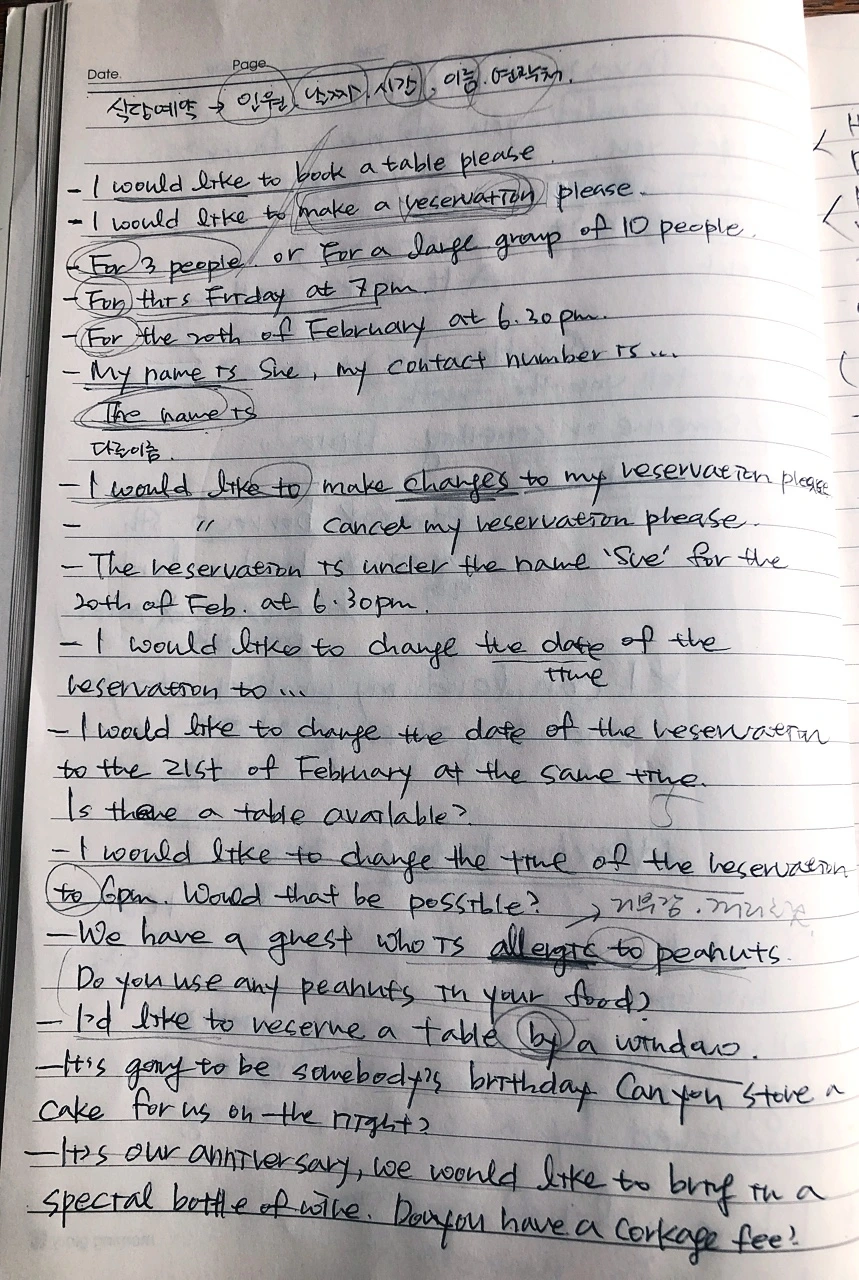 Date. Page
식당예약 → 인원, 날짜, 시간, 이름. 연락처.
- I would like to book a table please
- I would like to make a reservation please.
- For 3 people. or For a large group of 10 people.
- For this Friday at 7pm.
- For the 20th of February at 6.30pm.
- My name is Sue, my contact number is...
The name is
다른이름.
- I would like to make changes to my reservation please
- 〃 cancel my reservation please.
- The reservation is under the name 'Sue' for the
20th of Feb. at 6.30pm.
- I would like to change the date of the
time
reservation to ...
- I would like to change the date of the reservation
to the 21st of February at the same time.
Is there a table available?
- I would like to change the time of the reservation
to 6pm. Would that be possible?
- We have a guest who is allergic to peanuts.
Do you use any peanuts in your food?
- I'd like to reserve a table by a window.
- It's going to be somebody's birthday Can you store a
cake for us on the night?
- It's our anniversary, we would like to bring in a
special bottle of wine. Do you have a corkage fee?